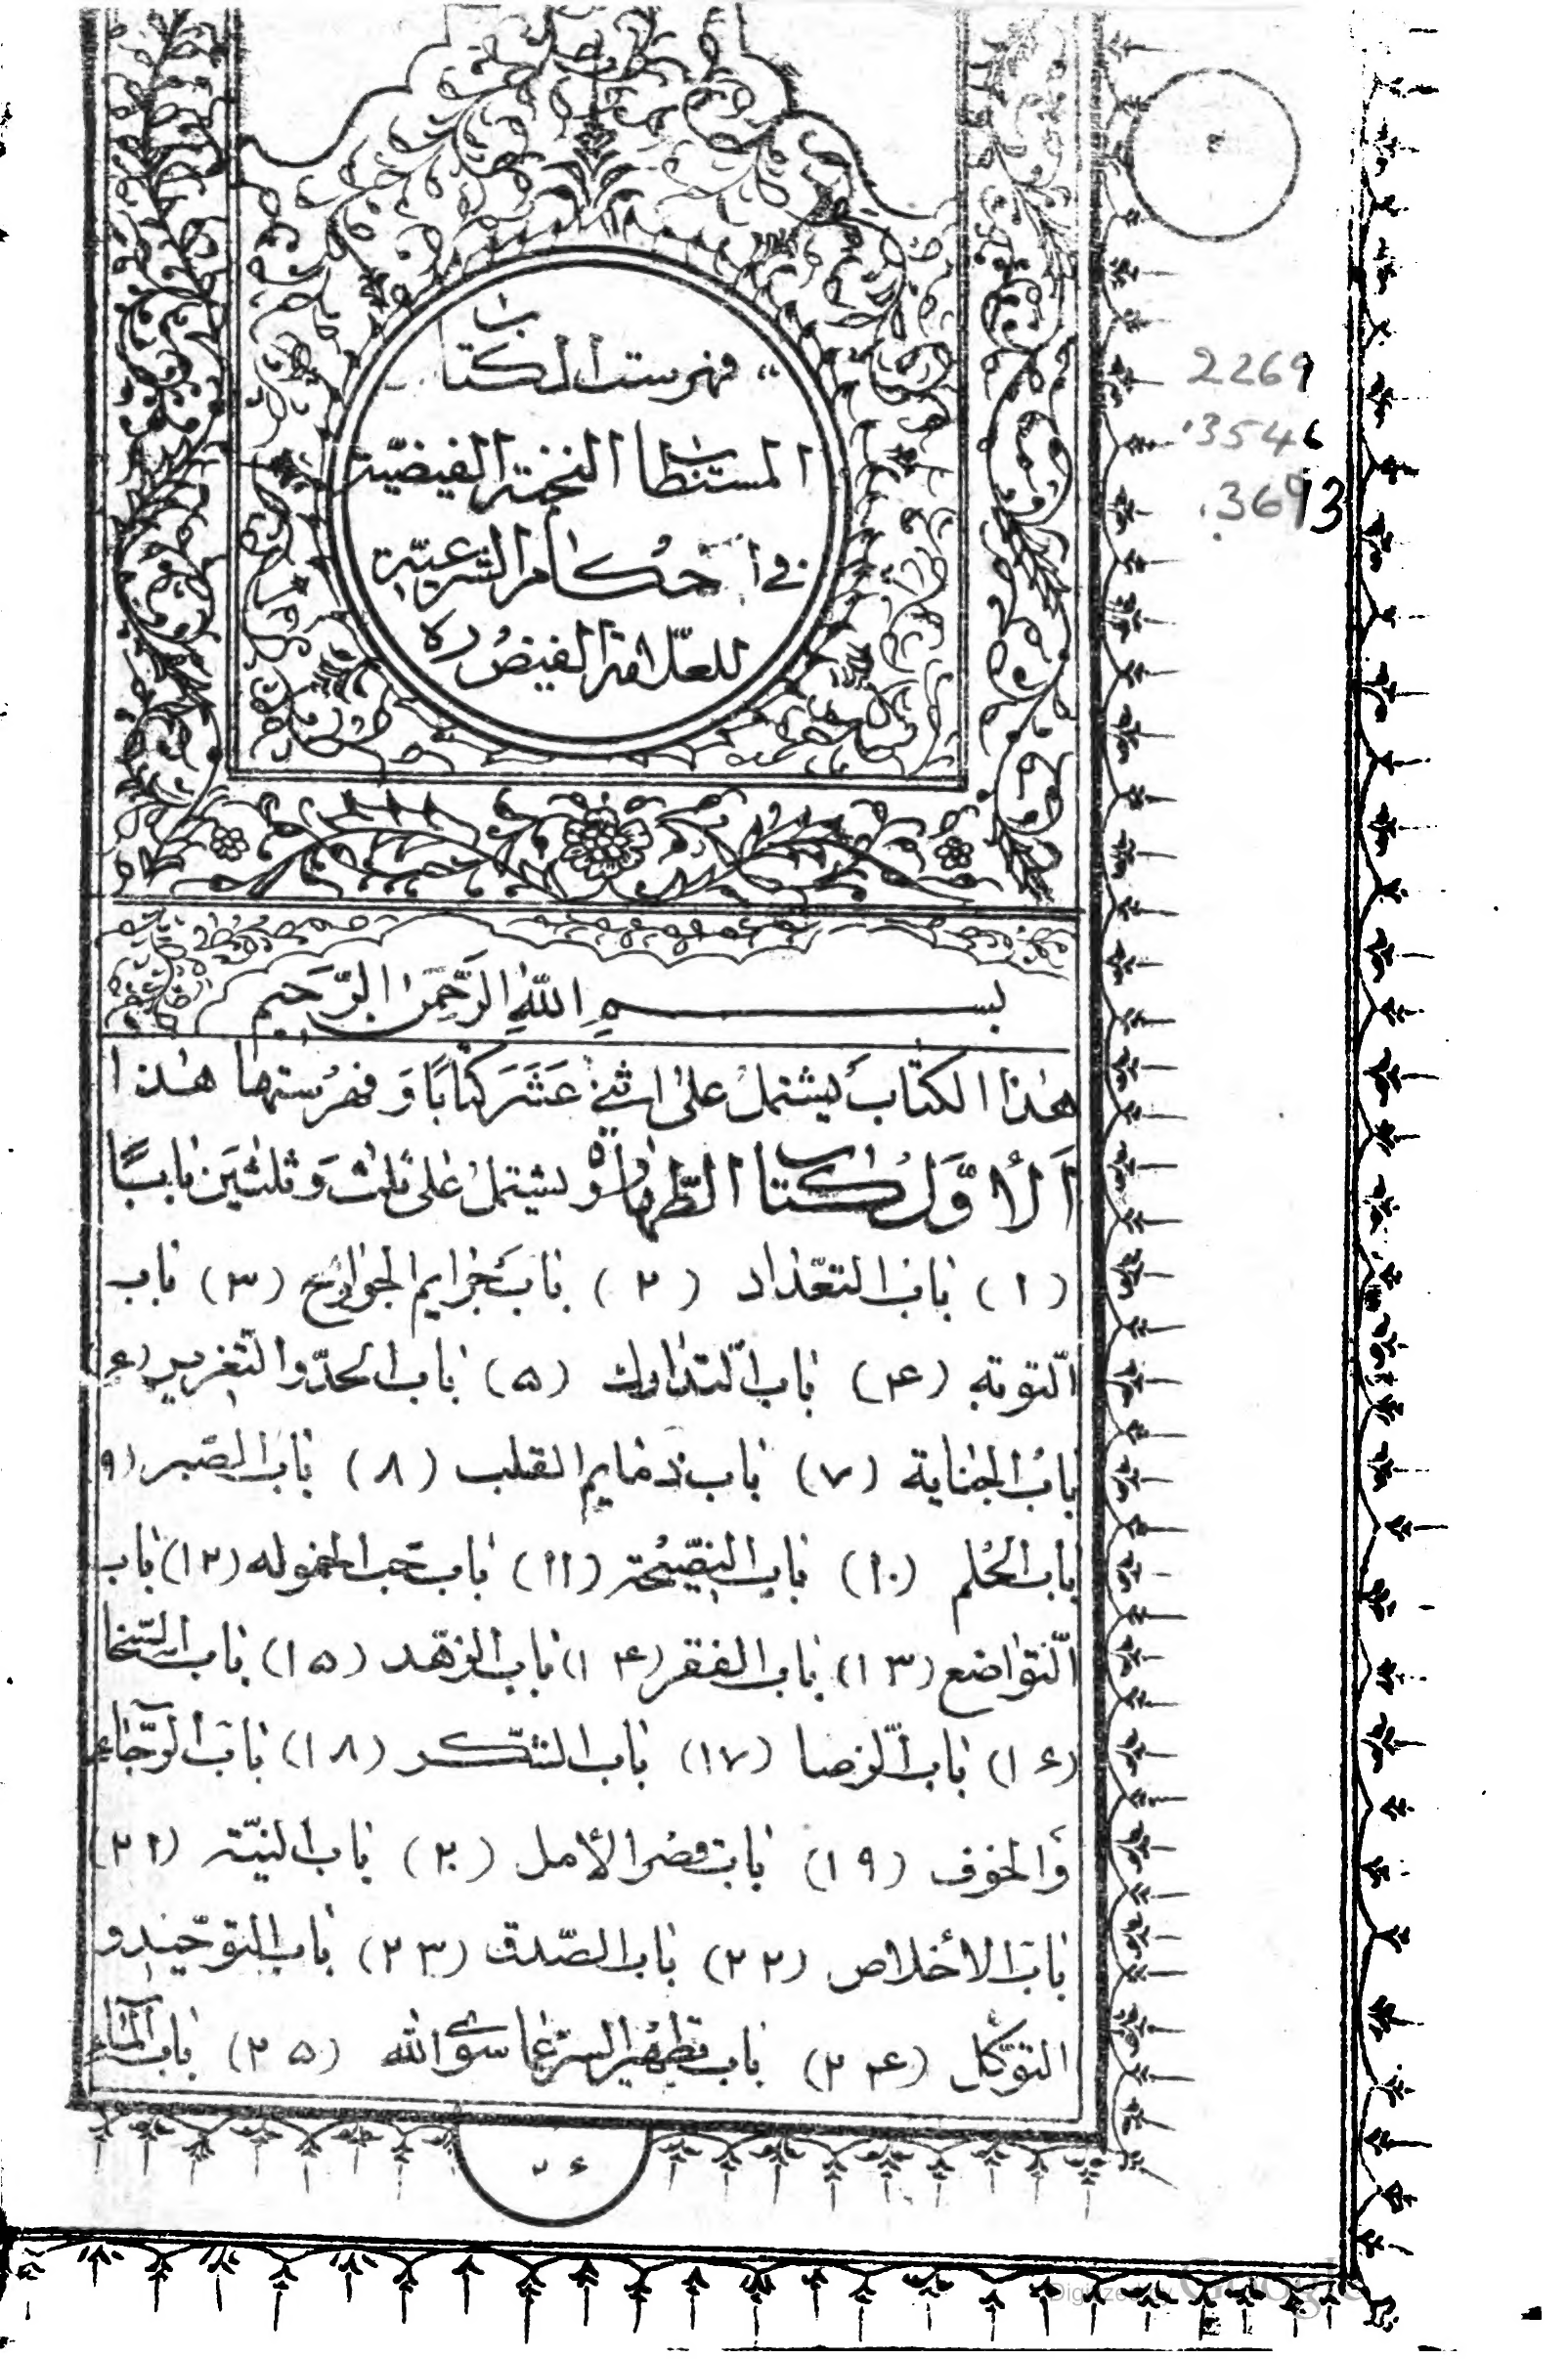 فهرست الكتاب
المستطاب النخبة الفيضيّة
في احكام الشرعيّة
للعلّامة الفيض ره
2269
.3546
.36913
بسم الله الرّحمن الرّحيم
هذا الكتاب يشتمل على اثني عشر كتابًا و فهرستها هذا
الأوّل كتاب الطّهارة يشتمل على ثلث و ثلثين بابًا
(١) باب التعداد (٢) باب جرايم الجوارح (٣) باب
التوبه (۴) باب التدارك (۵) باب الحدّ و التعزير (۶)
باب الجناية (٧) باب ذمايم القلب (٨) باب الصّبر (٩
باب الحلم (١٠) باب النصيحة (١١) باب حب الخموله (١٢) باب
التواضع (١٣) باب الفقر (١۴) باب الزهد (١۵) باب السّخا
(١۶) باب الرضا (١٧) باب الشكر (١٨) باب الرّجاء
و الخوف (١٩) باب قصر الأمل (٢٠) باب النيّة (٢١)
باب الأخلاص (٢٢) باب الصّدق (٢٣) باب التوحيد و
التوكّل (٢۴) باب تطهير السرّ عما سوى الله (٢۵) باب الماء
Digitized by Google